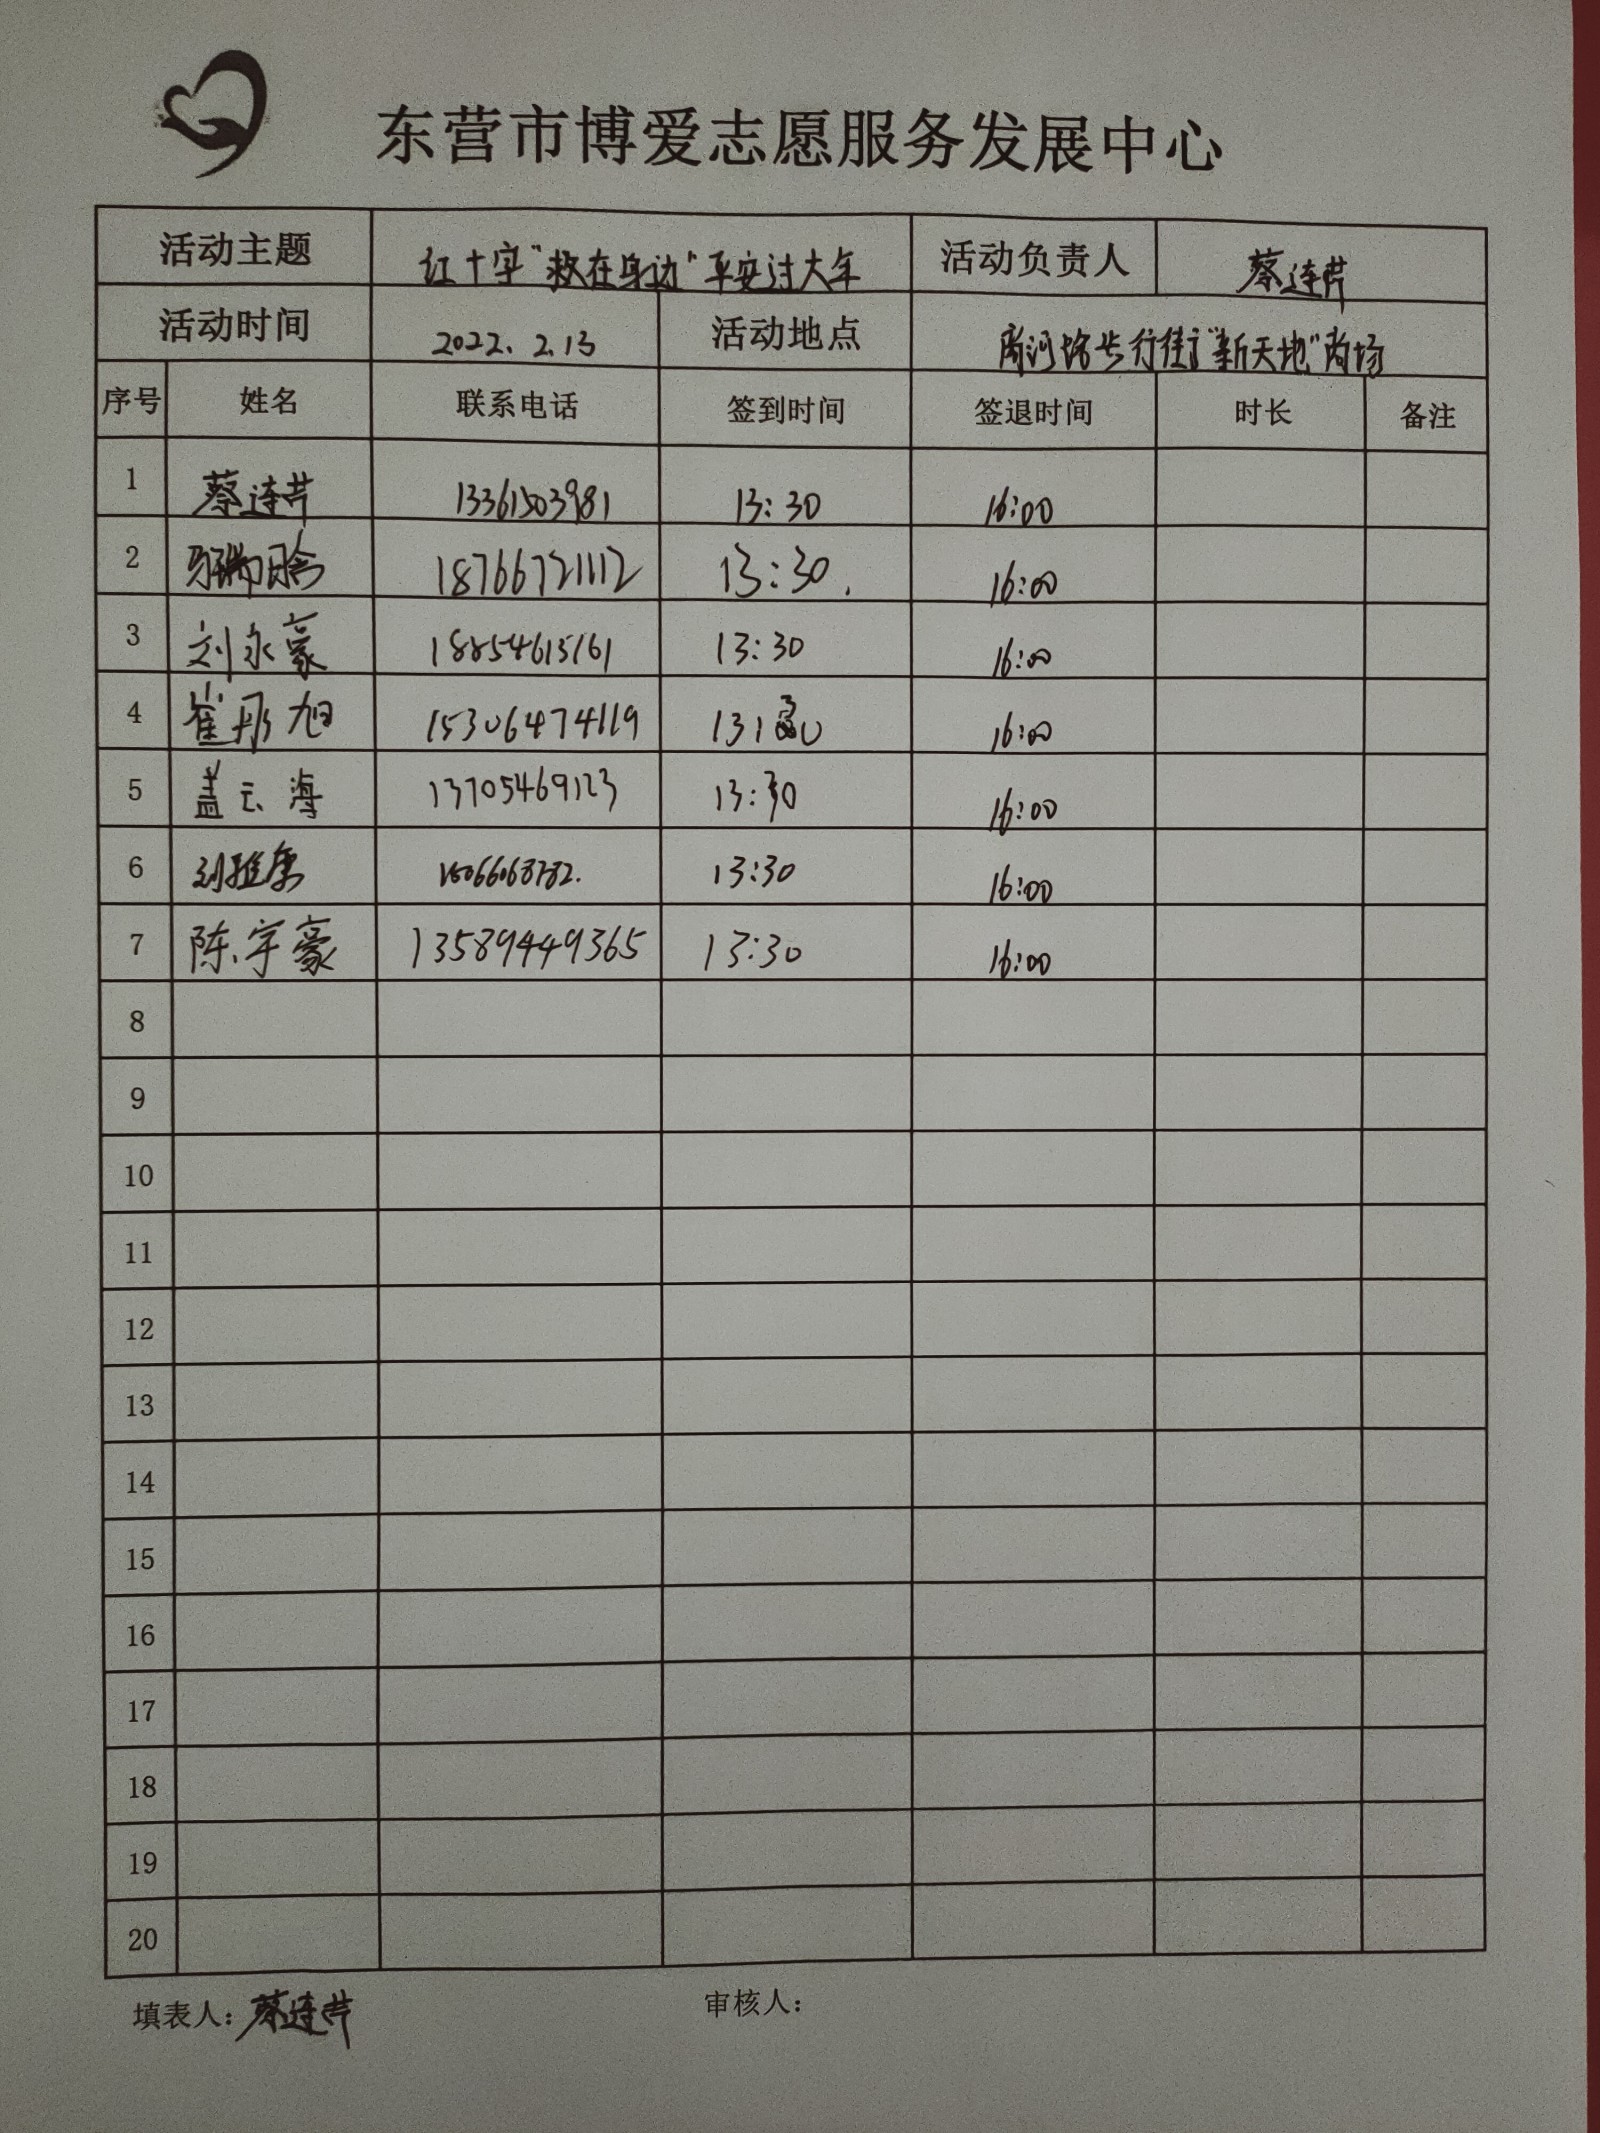 东营市博爱志愿服务发展中心
活动主题 红十字"救在身边"平安过大年 活动负责人 蔡连芹
活动时间 2022.2.13 活动地点 商河路步行街"新天地"商场
序号 姓名 联系电话 签到时间 签退时间 时长 备注
1 蔡连芹 13361503981 13:30 16:00
2 18766721112 13:30. 16:00
3 刘永豪 18854613161 13:30 16:00
4 崔彤旭 15306474119 16:00
5 盖云海 13705469123 13:30 16:00
6 13:30 16:00
7 陈宇豪 13589449365 13:30 16:00
8
9
10
11
12
13
14
15
16
17
18
19
20
填表人：蔡连芹 审核人：